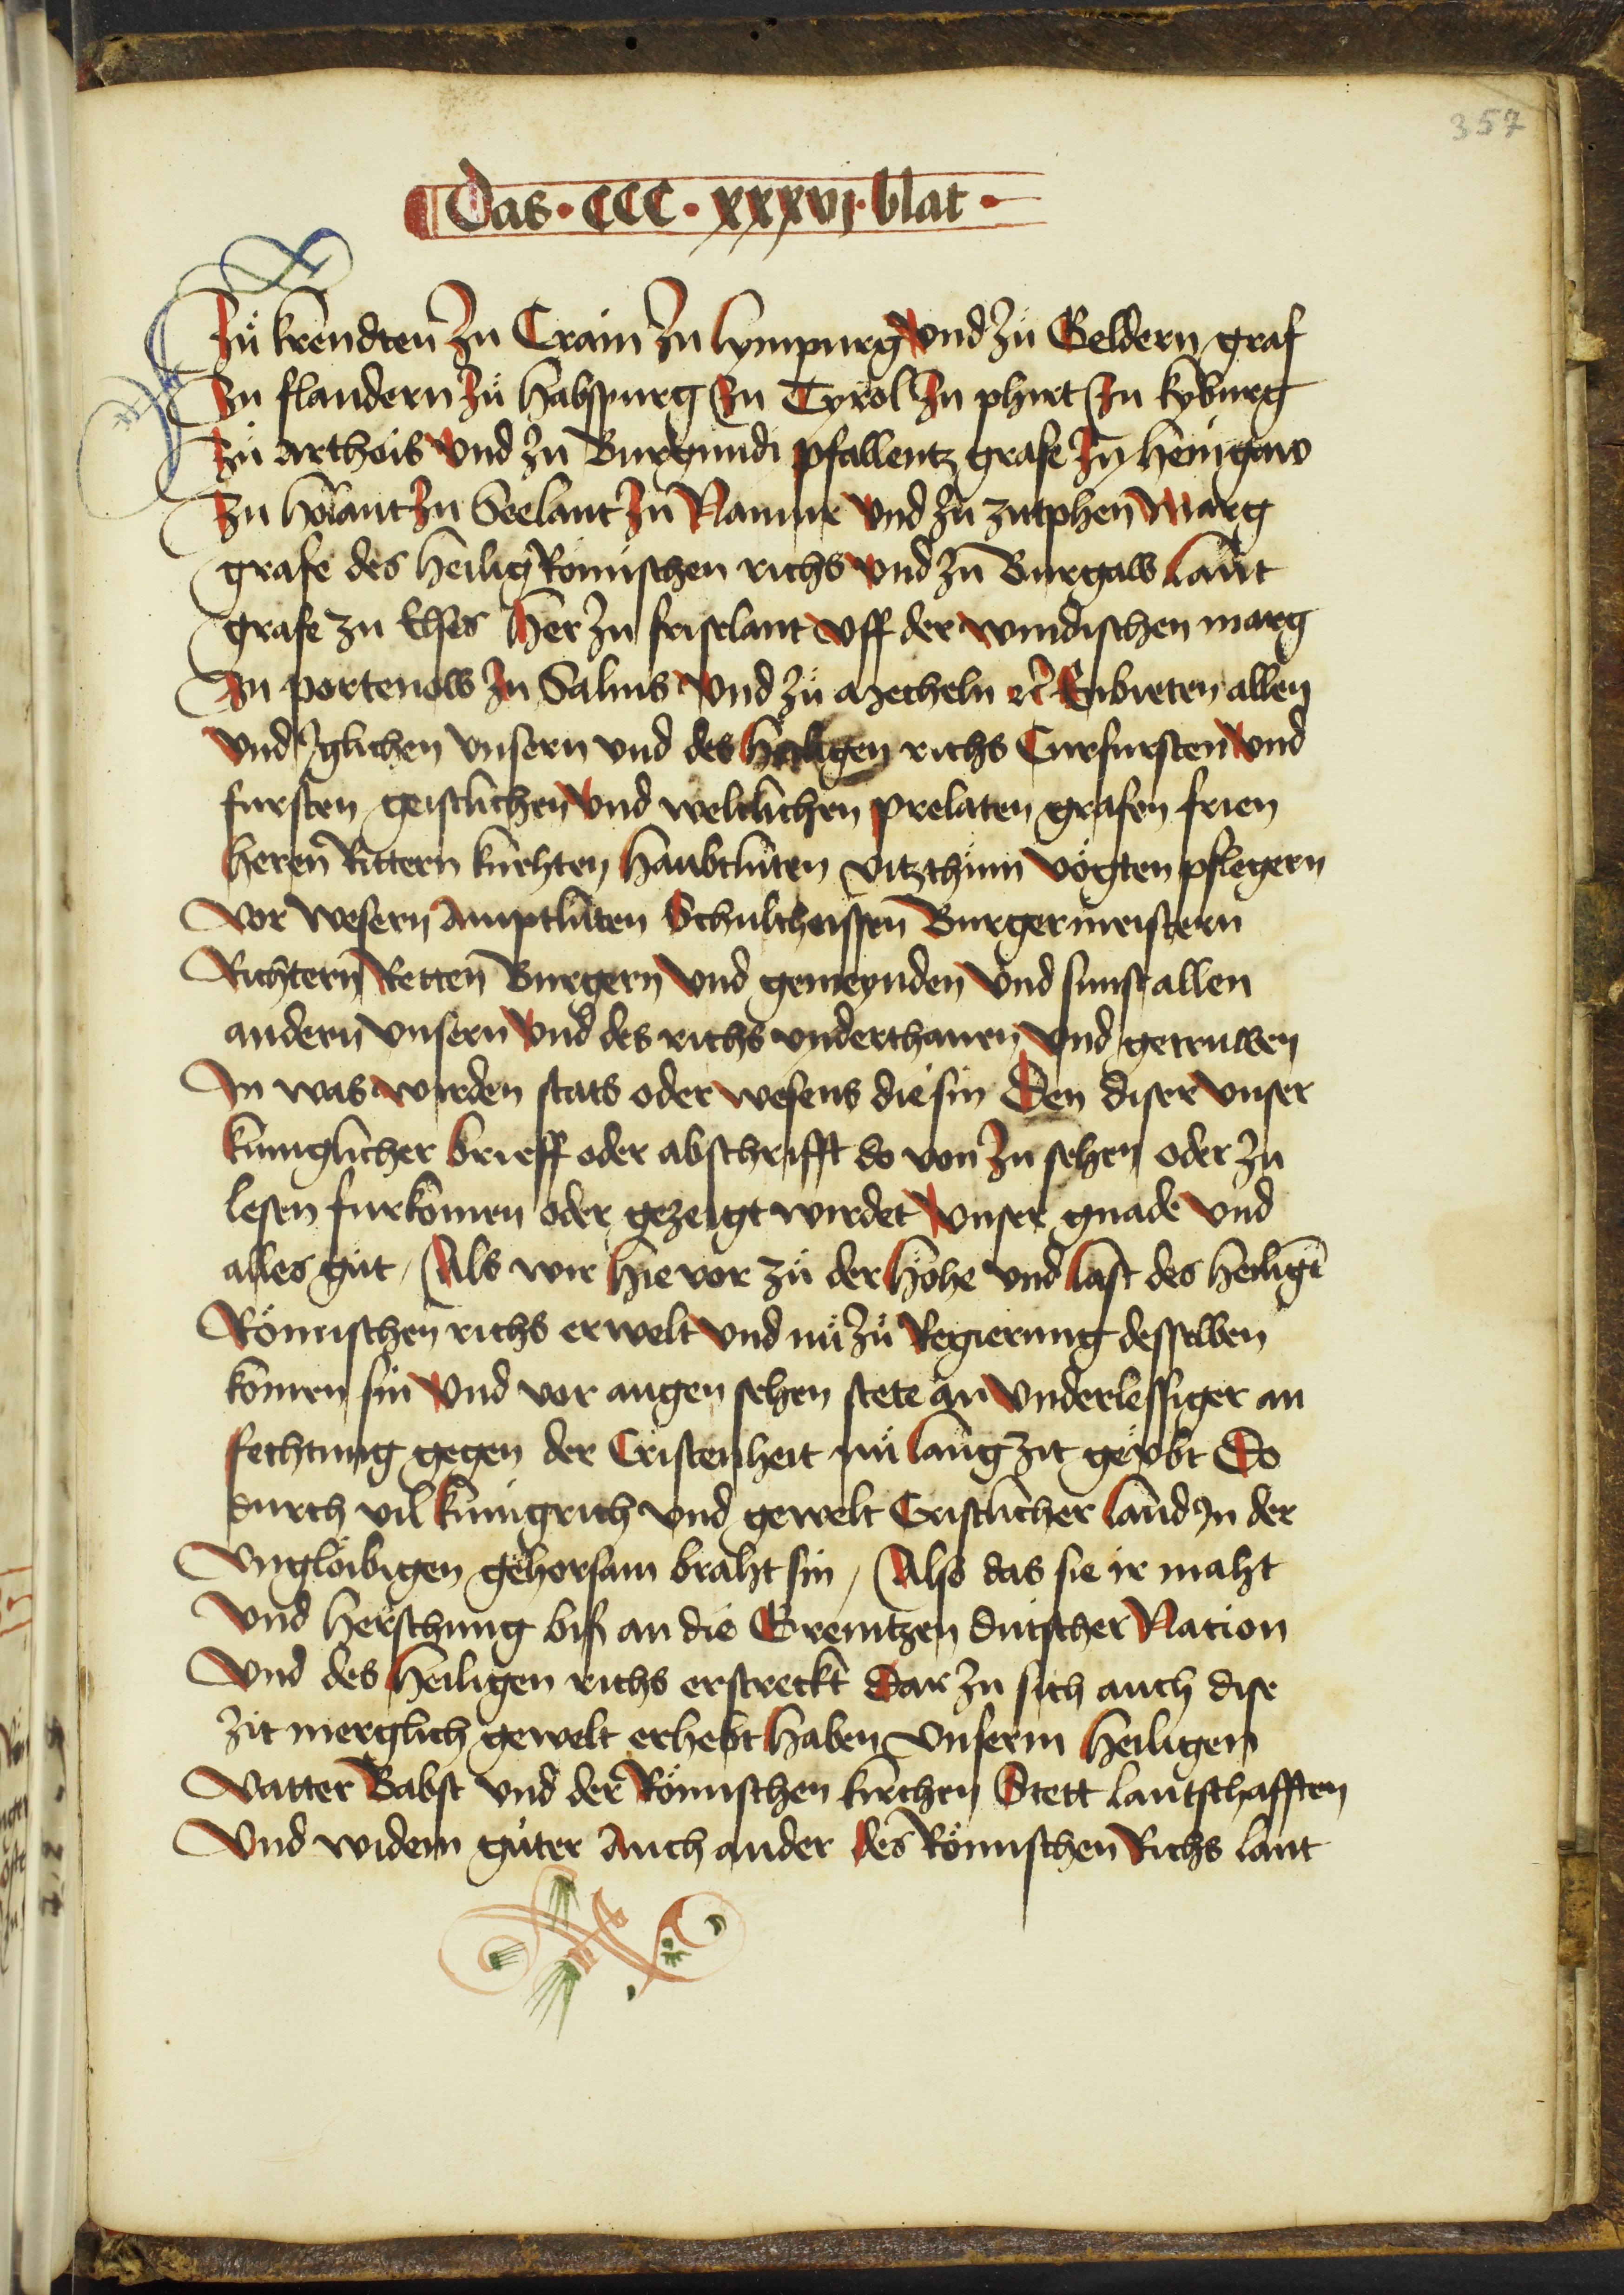 357
Das · CCC · xxxvj · blat ·
Zů krendten Zu Crain Zu lympurg vnd Zů Geldern graf
Zu flandern Zů habspurg Zu Tyrol Zu phirt Zu kyburg
Zů arthois vnd Zu Burgundi pfallentz grafe Zu henigaw
Zu holant Zu Seelant Zu Namur vnd Zu zutphen Marg
grafe des heilig Römischen richs vnd Zu Burgaw lant
grafe zu Elses her Zu frislant vff der windischen marg
Zu portenow Zu Salins vnd Zů mecheln ꝛc Enbieten allen
vnd Iglichen vnsern vnd des heiligen richs Curfursten vnd
fursten geistlichen vnd weltlichen prelaten grafen frien
heren Rittern knehten haubtluten vitzthum vögten pflegern
vor wesern amptluten Schultheissen Burgermeistern
Richtern Retten Burgern vnd gemeynden vnd sunst allen
andern vnsern vnd des richs vnderthanen vnd getruwen
In was wirden stats oder wesens die sin Den diser vnser
kuniglicher brieff oder abschrifft do von Zu sehen oder Zu
lesen furkomen oder gezeigt wirdet vnser gnade vnd
alles gůt / Als wir hie vor zů der höhe vnd last des heiligē
Römischen richs erwelt vnd nů Zů Regierung desselben
komen sin vnd vor augen sehen stete an vnderlessiger an
fechtung gegen der Cristenheit nů lang zit geübt Do
durch vil kunigrich vnd gewelt Cristlicher land In der
vnglöibigen gehorsam braht sin / Also das sie ir maht
vnd herschung biß an die Grenitzen dutscher Nation
vnd des heiligen richs erstreckt Dar Zu sich auch dise
zit merglich gewelt erhebt haben vnserm heiligen
vatter Babst vnd der Römischen kirchen Stett lantschafften
vnd widem gůter Auch ander des Römischen Richs lant